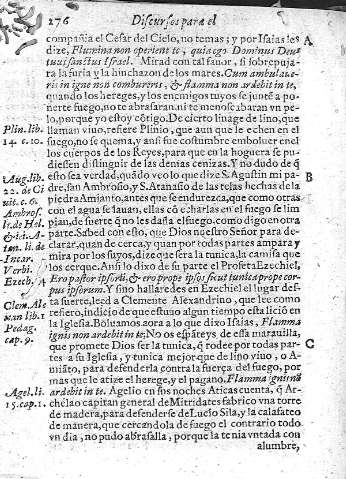 276 Discursos para el
compañia el Cesar del Cielo, no temas; y por Isaias les A
dize, Flumina non operient te, quia ego Dominus Deus
tuus sanctus Israel. Mirad con tal favor, si sobrepuja-
ra la furia y la hinchazon de los mares. Cum ambulave-
ris in igne non combureris, & flamma non ardebit in te,
quando los hereges, y los enemigos tuyos se juntẽ a po-
nerte fuego, no te abrasaran, ni te menoscabaran vn pe-
lo, porque yo estoy cõtigo. De cierto linage de lino, que
Plin. lib. llaman viuo, refiere Plinio, que aun que le echen en el
14. c. 10. fuego, no se quema, y ansi fue costumbre emboluer en el
los cuerpos de los Reyes, para que en la hoguera se pu-
diessen distinguir de las demas cenizas. Y no dudo de q̃
Aug. lib. esto sea verdad, quãdo veo lo que dize S. Agustin mi pa- B
22. de Ci dre, san Ambrosio, y S. Atanasio de las telas hechas de la
uit. c. 6. piedra Amianto, antes que se endurezca, que como otras
Ambros. con el agua se lauan, ellas cõ echarlas en el fuego se lim
li. de Hal. pian, de suerte q̃ no les daña el fuego, como digo en otra
parte. Sabed con esto, que Dios nuestro Señor para de-
clarar, quan de cerca, y quan por todas partes ampara y
Incar. mira por los suyos, dize que sera la tunica, la camisa que
Verbi. los cerque. Ansi lo dixo de su parte el Profeta Ezechiel,
Ezech. Ero pastor ipsorũ, & ero prope ipsos sicut tunica prope cor-
pus ipsorum. Y si no hallaredes en Ezechiel el lugar des-
Clem. Ale ta suerte, leed a Clemente Alexandrino, que lee como
xan. lib 1 refiero, indicio de que estuuo algun tiempo esta licion en
Pedag. la Iglesia. Boluamos aora a lo que dixo Isaias, Flamma
cap. 9. ignis non ardebit in te; No os espãteys de essa marauilla,
que promete Dios ser la tunica, q̃ rodee por todas par- C
tes a su Iglesia, y tunica mejor que de lino viuo, o A-
miãto, para defenderla contra la fuerça del fuego, por
mas que le atize el herege, y el pagano. Flamma ignis nõ
Agel. li. ardebit in te. Agelio en sus noches Aticas cuenta, q̃ Ar-
15. cap. 1. chelao capitan general de Mitridates fabrico vna torre
de madera, para defenderse de Lucio Sila, y la calafateo
de manera, que cercandola de fuego el contrario todo
vn dia, no pudo abrasalla, porque la tenia vntada con
alumbre,